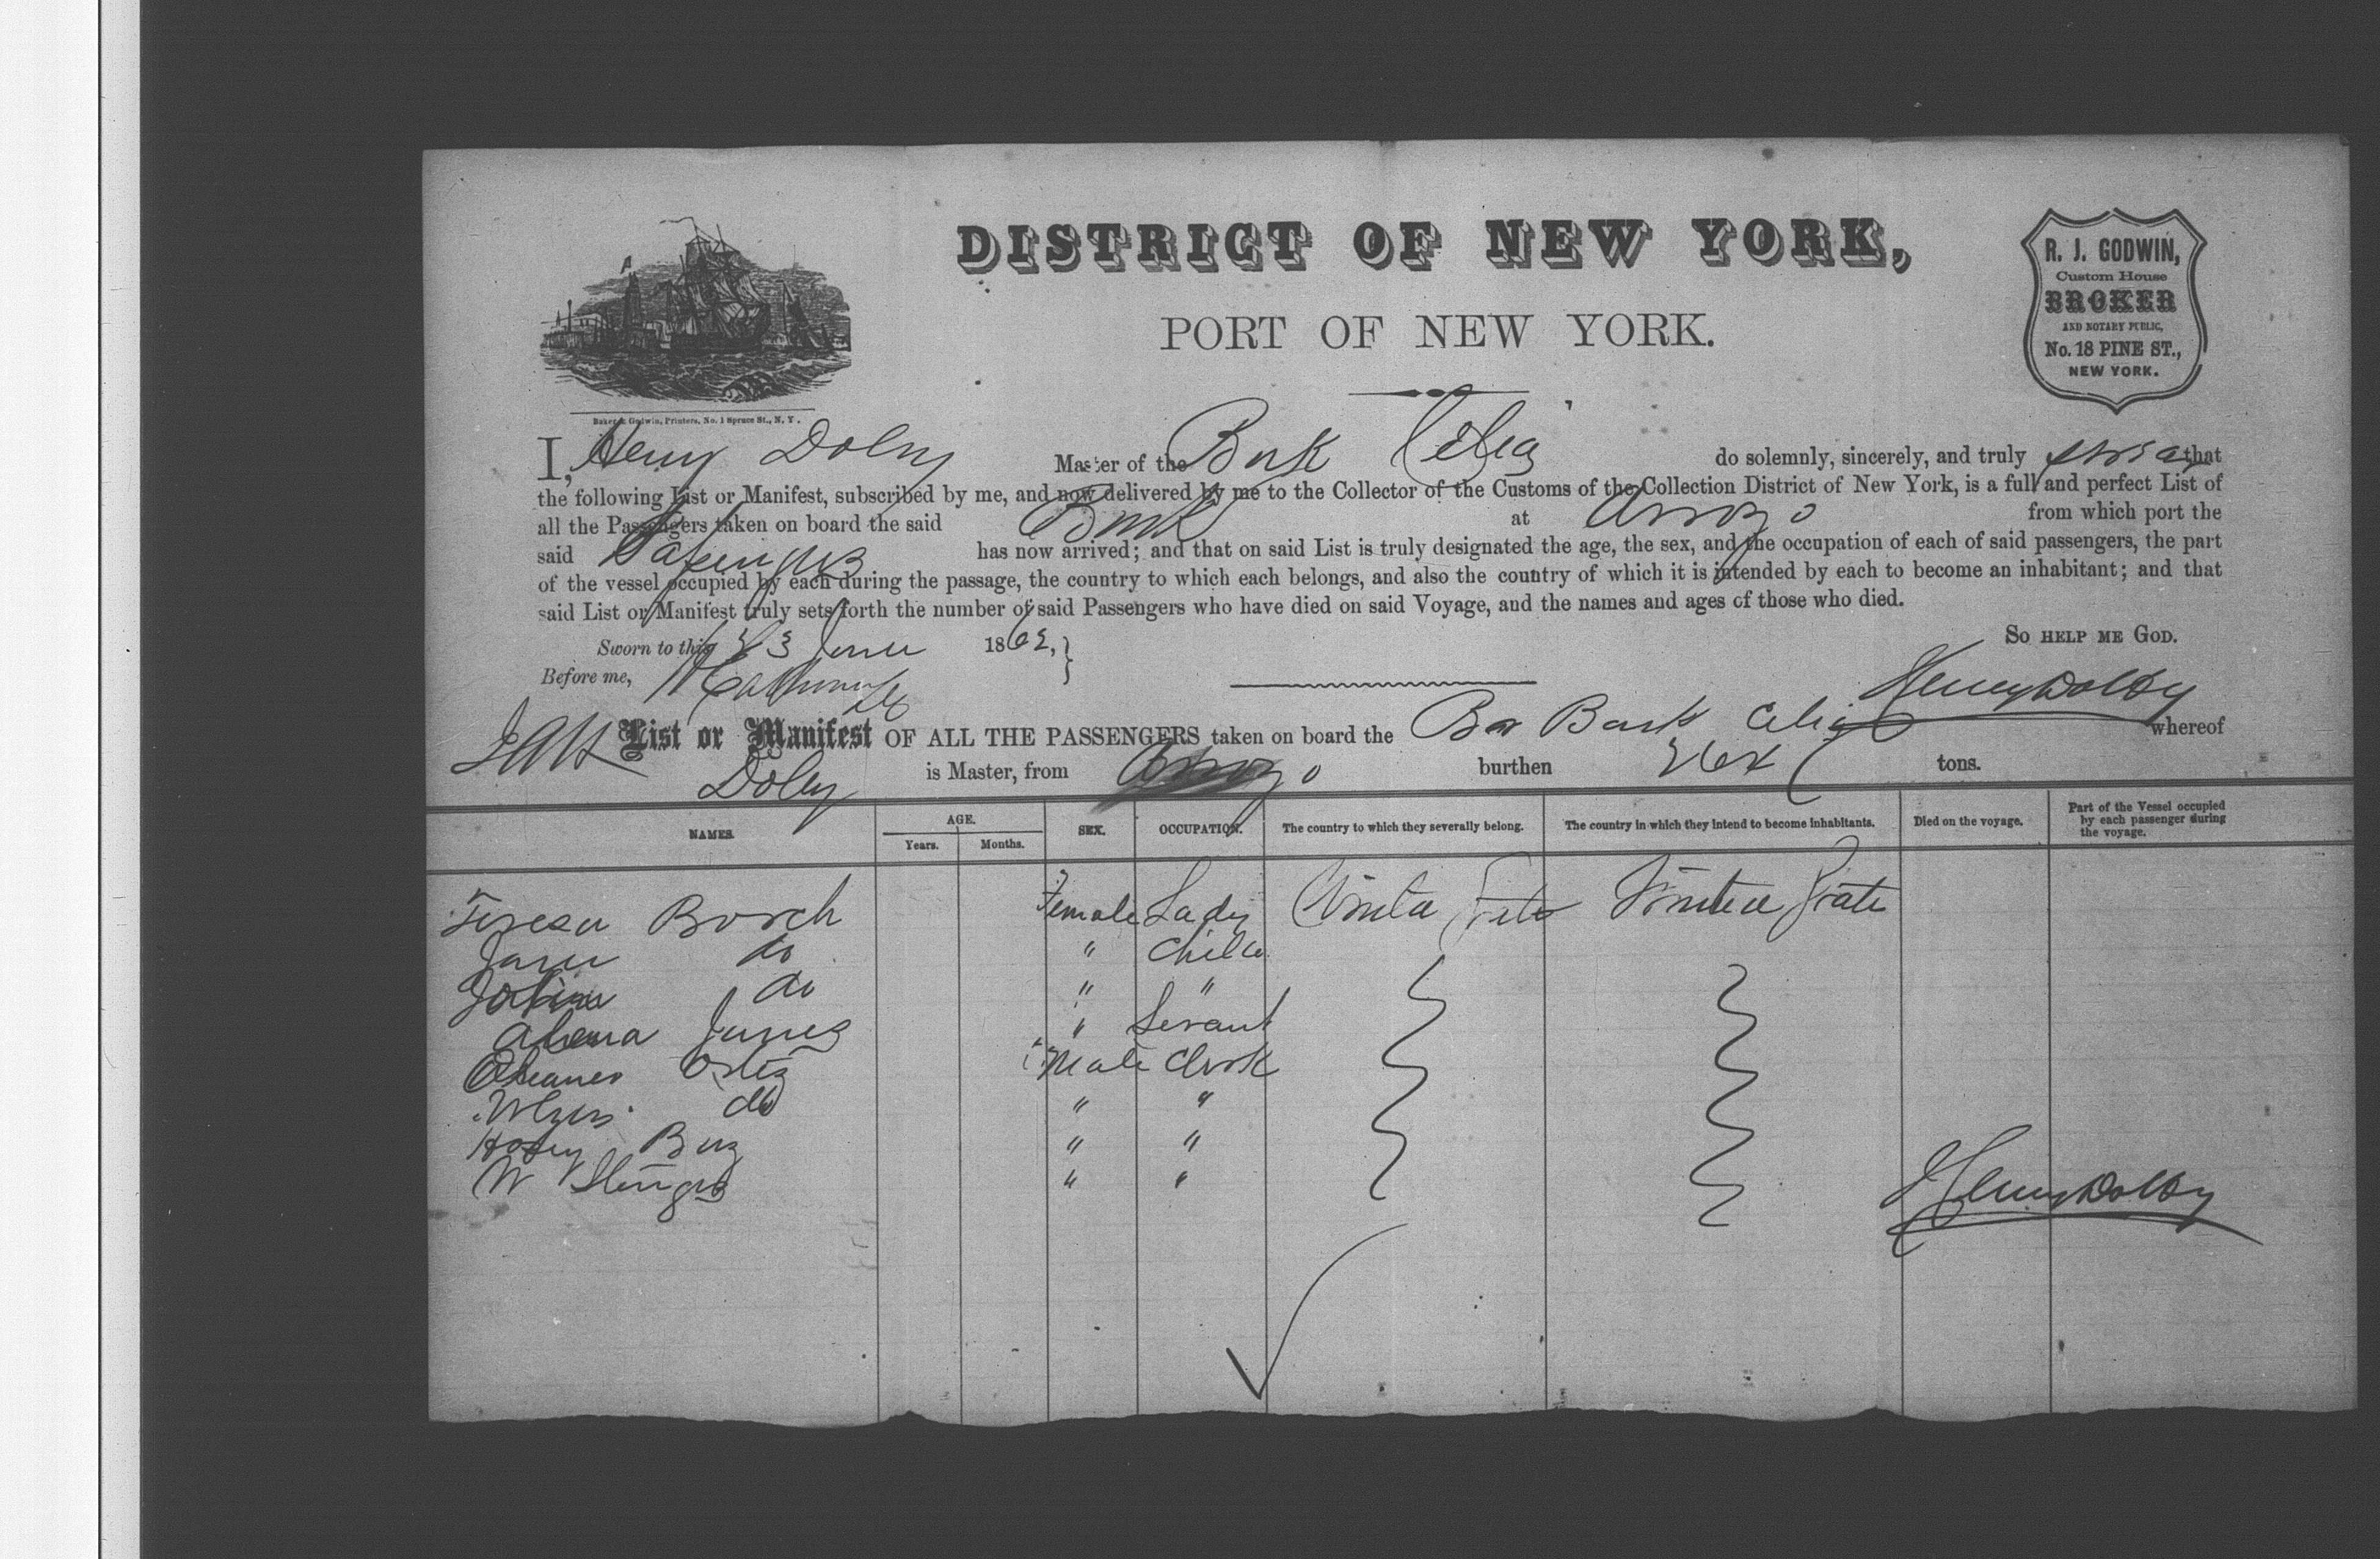 DISTRICT OF NEW YORK,
PORT OF NEW YORK.
R. J. GODWIN,
Custom House
BROKER
AND NOTARY PUBLIC,
No. 18 PINE ST.,
NEW YORK.
Baker & Godwin, Printers, No. 1 Spruce St., N. Y.
I, Henry Dolby Master of the Bark Celia do solemnly, sincerely, and truly swear that
the following List or Manifest, subscribed by me, and now delivered by me to the Collector of the Customs of the Collection District of New York, is a full and perfect List of
all the Passengers taken on board the said Bark at Arroyo from which port the
said Passengers has now arrived; and that on said List is truly designated the age, the sex, and the occupation of each of said passengers, the part
of the vessel occupied by each during the passage, the country to which each belongs, and also the country of which it is intended by each to become an inhabitant; and that
said List or Manifest truly sets forth the number of said Passengers who have died on said Voyage, and the names and ages of those who died.
Sworn to this 23 June 1862, }
So HELP ME GOD.
Before me,
Henry Dolby
List or Manifest OF ALL THE PASSENGERS taken on board the Br Bark Celia whereof
Dolby is Master, from Arroyo burthen tons.
NAMES. AGE. SEX. OCCUPATION. The country to which they severally belong. The country in which they intend to become inhabitants. Died on the voyage. Part of the Vessel occupied by each passenger during the voyage.
Years. Months.
Teresa Borch Female Lady United States United States
Jane do " Child
do " "
Jones " Servant
Ortiz Male Clerk
do " "
" "
W " "
Henry Dolby